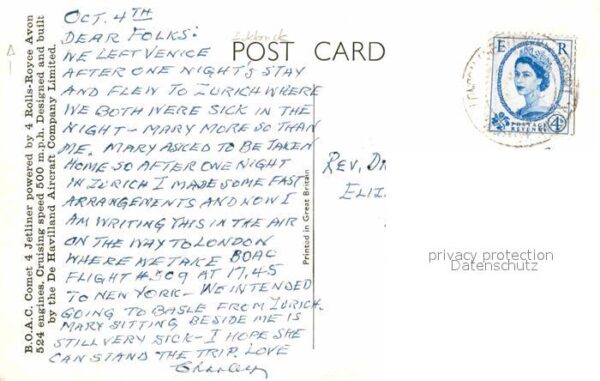 B.O.A.C. Comet 4 Jetliner powered by 4 Rolls-Royce Avon
524 engines. Cruising speed 500 m.p.h. Designed and built
by the De Havilland Aircraft Company Limited.
OCT. 4TH
DEAR FOLKS:
WE LEFT VENICE
AFTER ONE NIGHT'S STAY
AND FLEW TO ZURICH WHERE
WE BOTH WERE SICK IN THE
NIGHT - MARY MORE SO THAN
ME. MARY ASKED TO BE TAKEN
HOME SO AFTER ONE NIGHT
IN ZURICH I MADE SOME FAST
ARRANGEMENTS AND NOW I
AM WRITING THIS IN THE AIR
ON THE WAY TO LONDON
WHERE WE TAKE BOAC
FLIGHT #509 AT 17,45
TO NEW YORK - WE INTENDED
GOING TO BASLE FROM ZURICH.
MARY SITTING BESIDE ME IS
STILL VERY SICK - I HOPE SHE
CAN STAND THE TRIP. LOVE
Charley
POST CARD
Printed in Great Britain
E R
POSTAGE
REVENUE
4D
REV. DR
ELIZ
privacy protection
Datenschutz